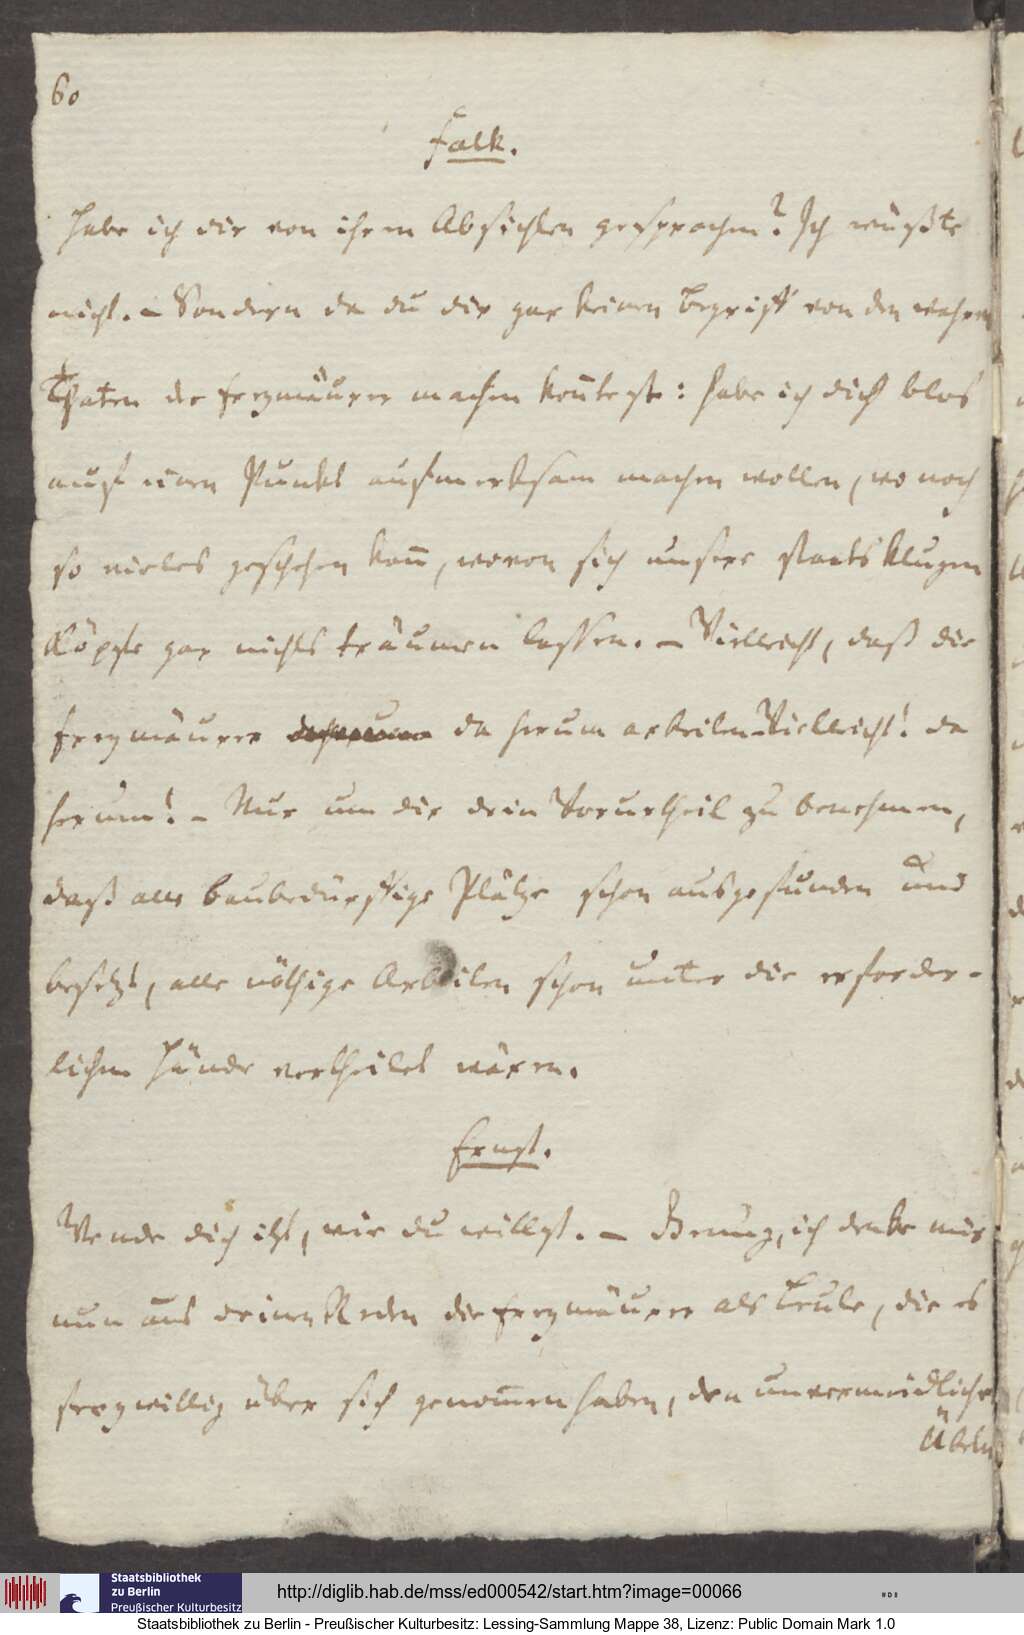 60
Falk.
Habe ich dir von ihren Absichten gesprochen? Ich wüßte
nicht. – Sondern da du dir gar keinen Begriff von den wahren
Thaten der Freymäurer machen konntest: habe ich dich blos
auf einen Punkt aufmerksam machen wollen, wo noch
so vieles geschehen kann, wovon sich unsere staatsklugen
Köpfe gar nichts träumen lassen. – Vielleicht, daß die
Freymäurer da herum arbeiten – Vielleicht! da
herum! – Nur um dir dein Vorurtheil zu benehmen,
daß alle baubedürftige Plätze schon ausgefunden und
besetzt, alle nöthige Arbeiten schon unter die erforder-
lichen Hände vertheilet wären.
Ernst.
Wende dich itzt, wie du willst. – Genung, ich denke mir
nun aus deinen Reden die Freymäurer als Leute, die es
freywillig über sich genommen haben, den unvermeidlichen
Übeln
Staatsbibliothek
zu Berlin
Preußischer Kulturbesitz
http://diglib.hab.de/mss/ed000542/start.htm?image=00066
Staatsbibliothek zu Berlin - Preußischer Kulturbesitz: Lessing-Sammlung Mappe 38, Lizenz: Public Domain Mark 1.0